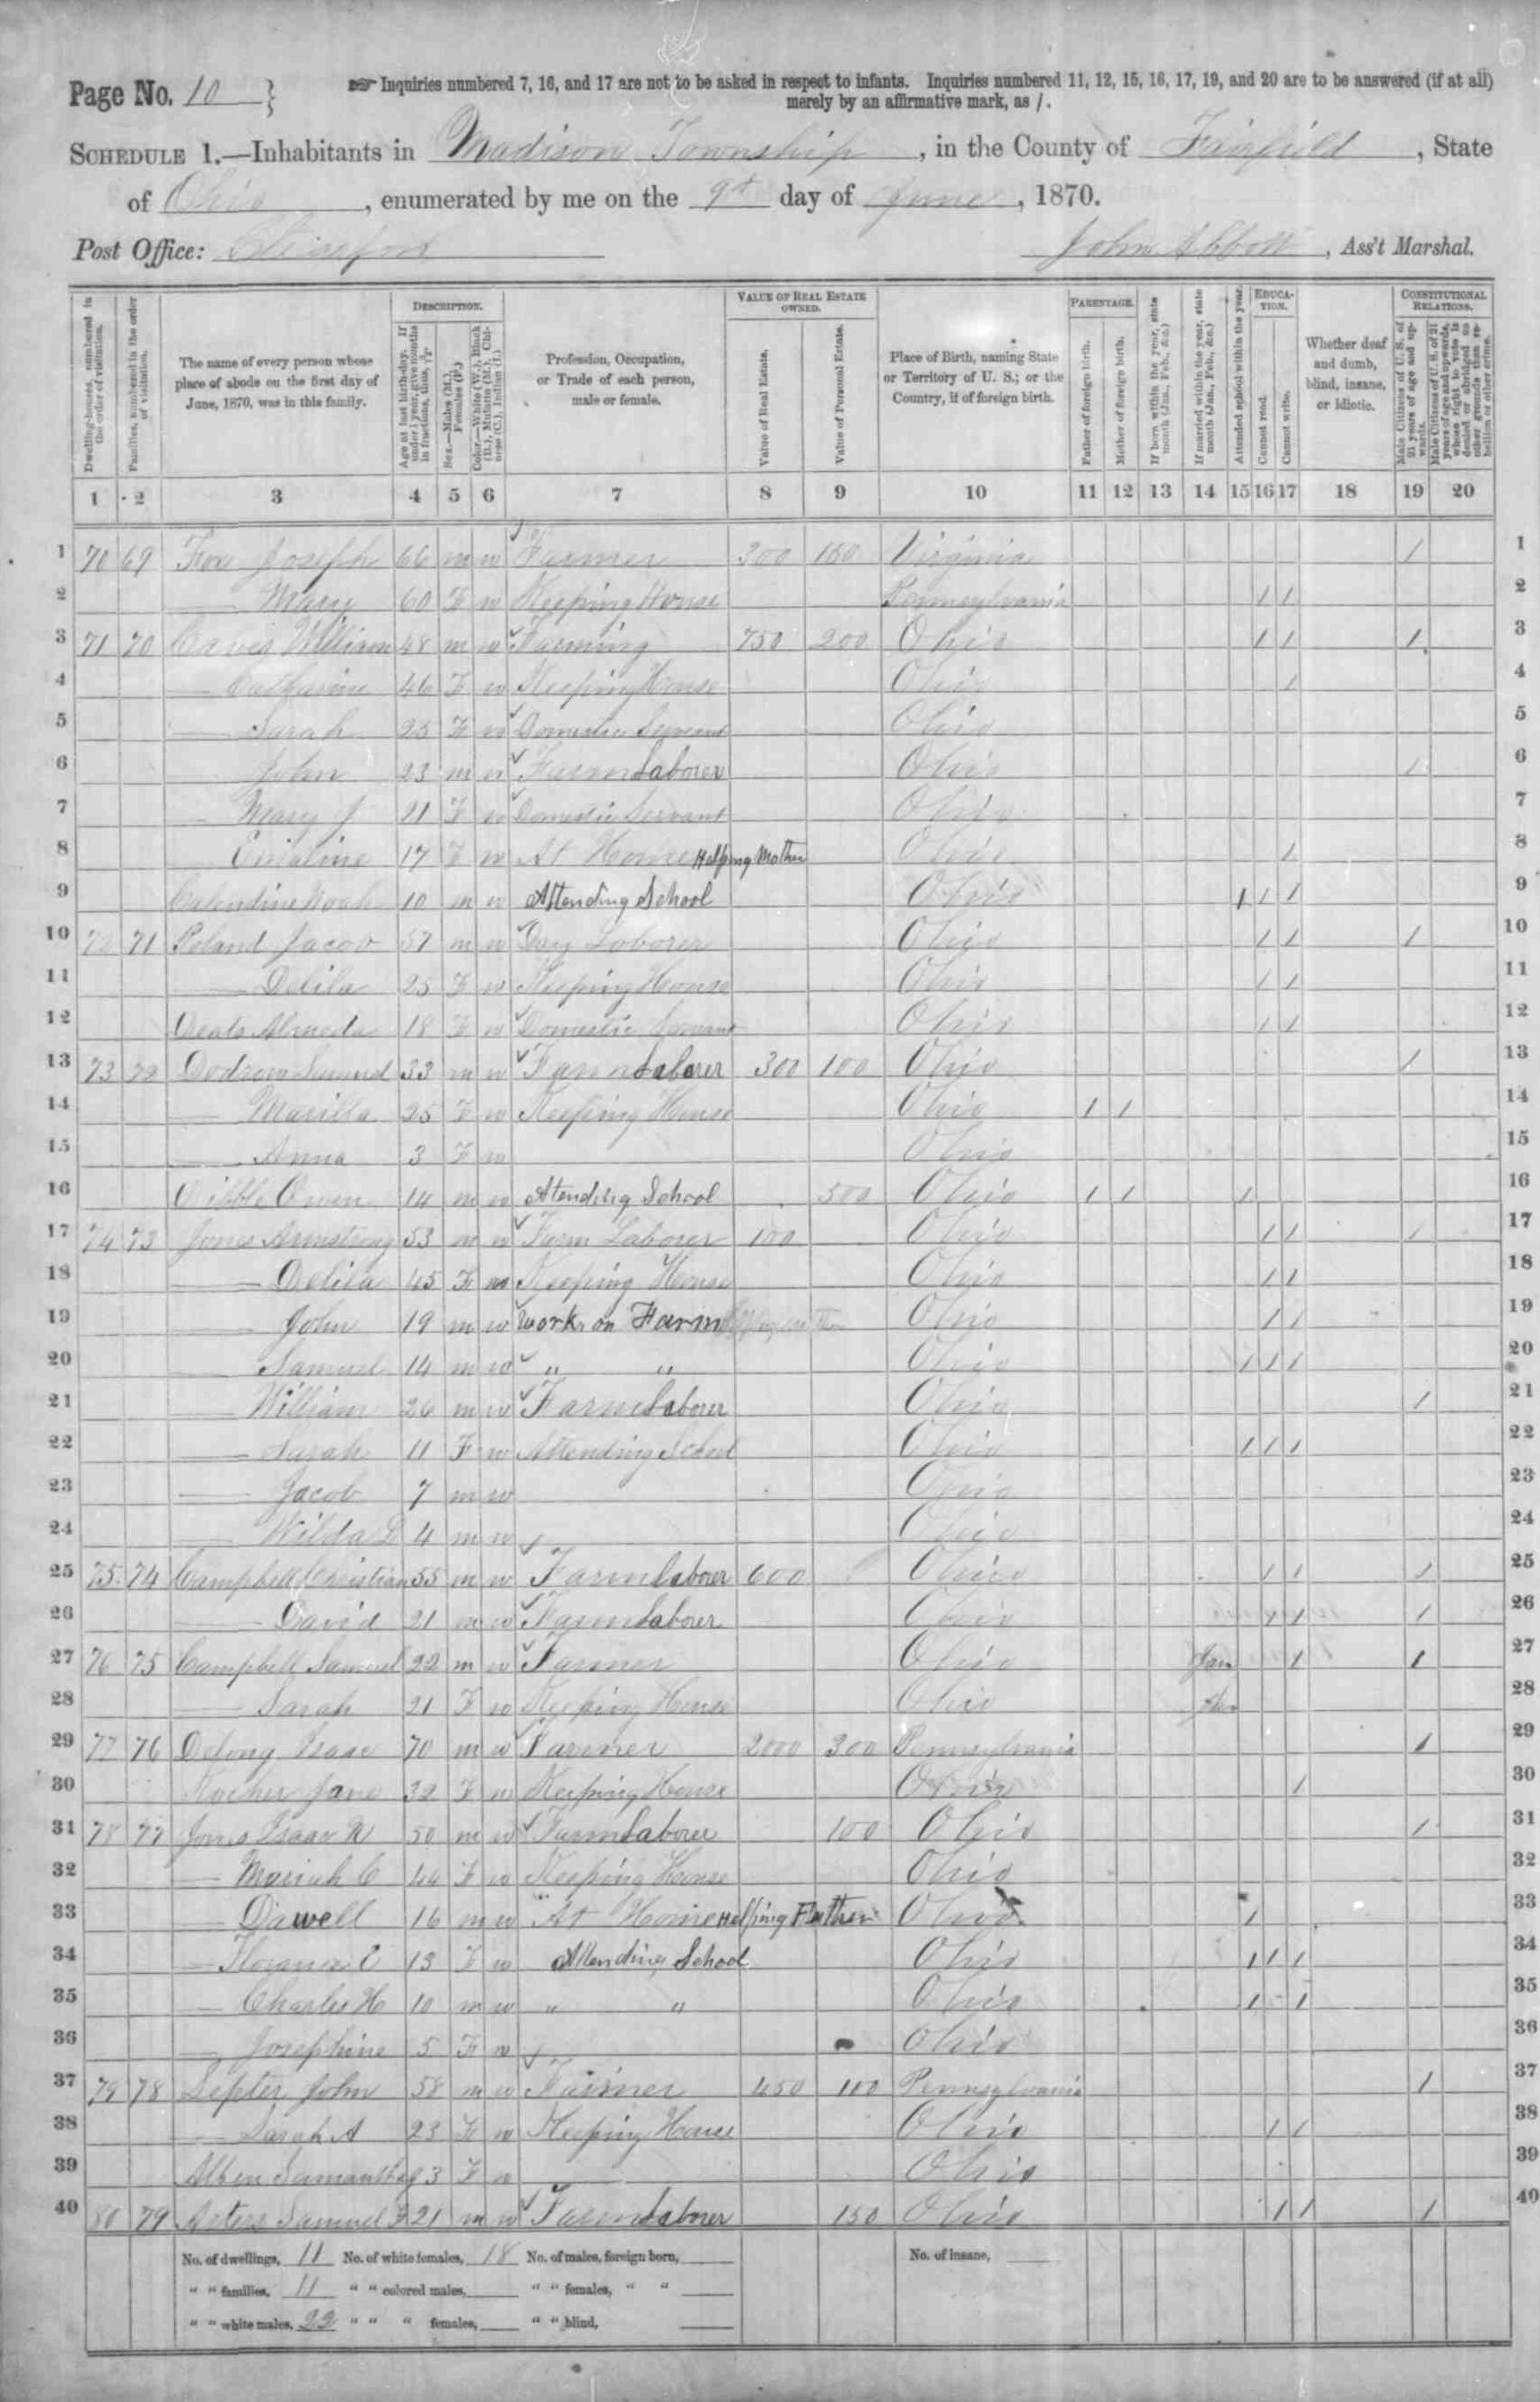 Page No. 10 }
☞ Inquiries numbered 7, 16, and 17 are not to be asked in respect to infants. Inquiries numbered 11, 12, 15, 16, 17, 19, and 20 are to be answered (if at all)
merely by an affirmative mark, as /.
SCHEDULE 1.—Inhabitants in Madison Township, in the County of Fairfield, State
of Ohio, enumerated by me on the 9th day of June, 1870.
Post Office:
John Abbott, Ass't Marshal.
Dwelling-houses, numbered in the order of visitation.
Families, numbered in the order of visitation.
The name of every person whose place of abode on the first day of June, 1870, was in this family.
DESCRIPTION.
Age at last birth-day. If under 1 year, give months in fractions, thus, 3/12.
Sex.—Males (M.), Females (F.)
Color.—White (W.), Black (B.), Mulatto (M.), Chinese (C.), Indian (I.)
Profession, Occupation, or Trade of each person, male or female.
VALUE OF REAL ESTATE OWNED.
Value of Real Estate.
Value of Personal Estate.
Place of Birth, naming State or Territory of U. S.; or the Country, if of foreign birth.
PARENTAGE.
Father of foreign birth.
Mother of foreign birth.
If born within the year, state month (Jan., Feb., &c.)
If married within the year, state month (Jan., Feb., &c.)
Attended school within the year.
EDUCATION.
Cannot read.
Cannot write.
Whether deaf and dumb, blind, insane, or idiotic.
CONSTITUTIONAL RELATIONS.
Male Citizens of U. S. of 21 years of age and upwards.
Male Citizens of U. S. of 21 years of age and upwards, whose right to vote is denied or abridged on other grounds than rebellion or other crime.
1 2 3 4 5 6 7 8 9 10 11 12 13 14 15 16 17 18 19 20
1 70 69 Fox Joseph 66 m w Farmer 300 150 Virginia / 1
2 — Mary 60 F w Keeping House Pennsylvania / / 2
3 71 70 William 48 m w Farming 750 200 Ohio / / / 3
4 — Catharine 46 F w Keeping House Ohio / 4
5 — Sarah 25 F w Domestic Servant Ohio 5
6 — John 23 m w Farm Laborer Ohio / 6
7 — Mary J 21 F w Domestic Servant Ohio 7
8 — 17 F w At Home Helping Mother Ohio / 8
9 Noah 10 m w Attending School Ohio / / / 9
10 72 71 Poland Jacob 57 m w Day Laborer Ohio / / / 10
11 — Delila 25 F w Keeping House Ohio / / 11
12 Almeda 18 F w Domestic Servant Ohio / / 12
13 73 72 Dodrow Samuel 33 m w Farm Laborer 300 100 Ohio / 13
14 — Marilla 25 F w Keeping House Ohio / / 14
15 — Anna 3 F w Ohio 15
16 Owen 14 m w Atending School 500 Ohio / / / 16
17 74 73 Jones Armstrong 53 m w Farm Laborer 100 Ohio / / / 17
18 — Delila 45 F w Keeping House Ohio / / 18
19 — John 19 m w Work on Farm Ohio / / 19
20 — Samuel 14 m w " " Ohio / / / 20
21 — William 26 m w Farm Laborer Ohio / 21
22 — Sarah 11 F w Attending School Ohio / / / 22
23 — Jacob 7 m w Ohio 23
24 — Wilda D 4 m w Ohio 24
25 75 74 Campbell Christian 55 m w Farm laborer 600 Ohio / / / 25
26 — David 21 m w Farm Laborer Ohio / / / 26
27 76 75 Campbell Samuel 22 m w Farmer Ohio Jan / / 27
28 — Sarah 21 F w Keeping House Ohio Jan 28
29 77 76 Delong Isaac 70 m w Farmer 2000 300 Pennsylvania / 29
30 Jane 32 F w Keeping House Ohio / 30
31 78 77 Jones Isaac N 50 m w Farm Laborer 100 Ohio / 31
32 — Mariah C 44 F w Keeping House Ohio 32
33 — Dawell 16 m w At Home Helping Father Ohio / 33
34 — 13 F w Attending School Ohio / / / 34
35 — Charles H 10 m w " " Ohio / - / 35
36 — Josephine 5 F w Ohio 36
37 79 78 Septer John 58 m w Farmer 450 100 Pennsylvania / 37
38 — Sarah A 23 F w Keeping House Ohio / / 38
39 Samantha 3 F w Ohio 39
40 80 79 Samuel F 21 m w Farm Laborer 150 Ohio / / / 40
No. of dwellings, 11 No. of white females, 18 No. of males, foreign born, No. of insane,
" " families, 11 " " colored males, " " females, " "
" " white males, 22 " " " females, " " blind,